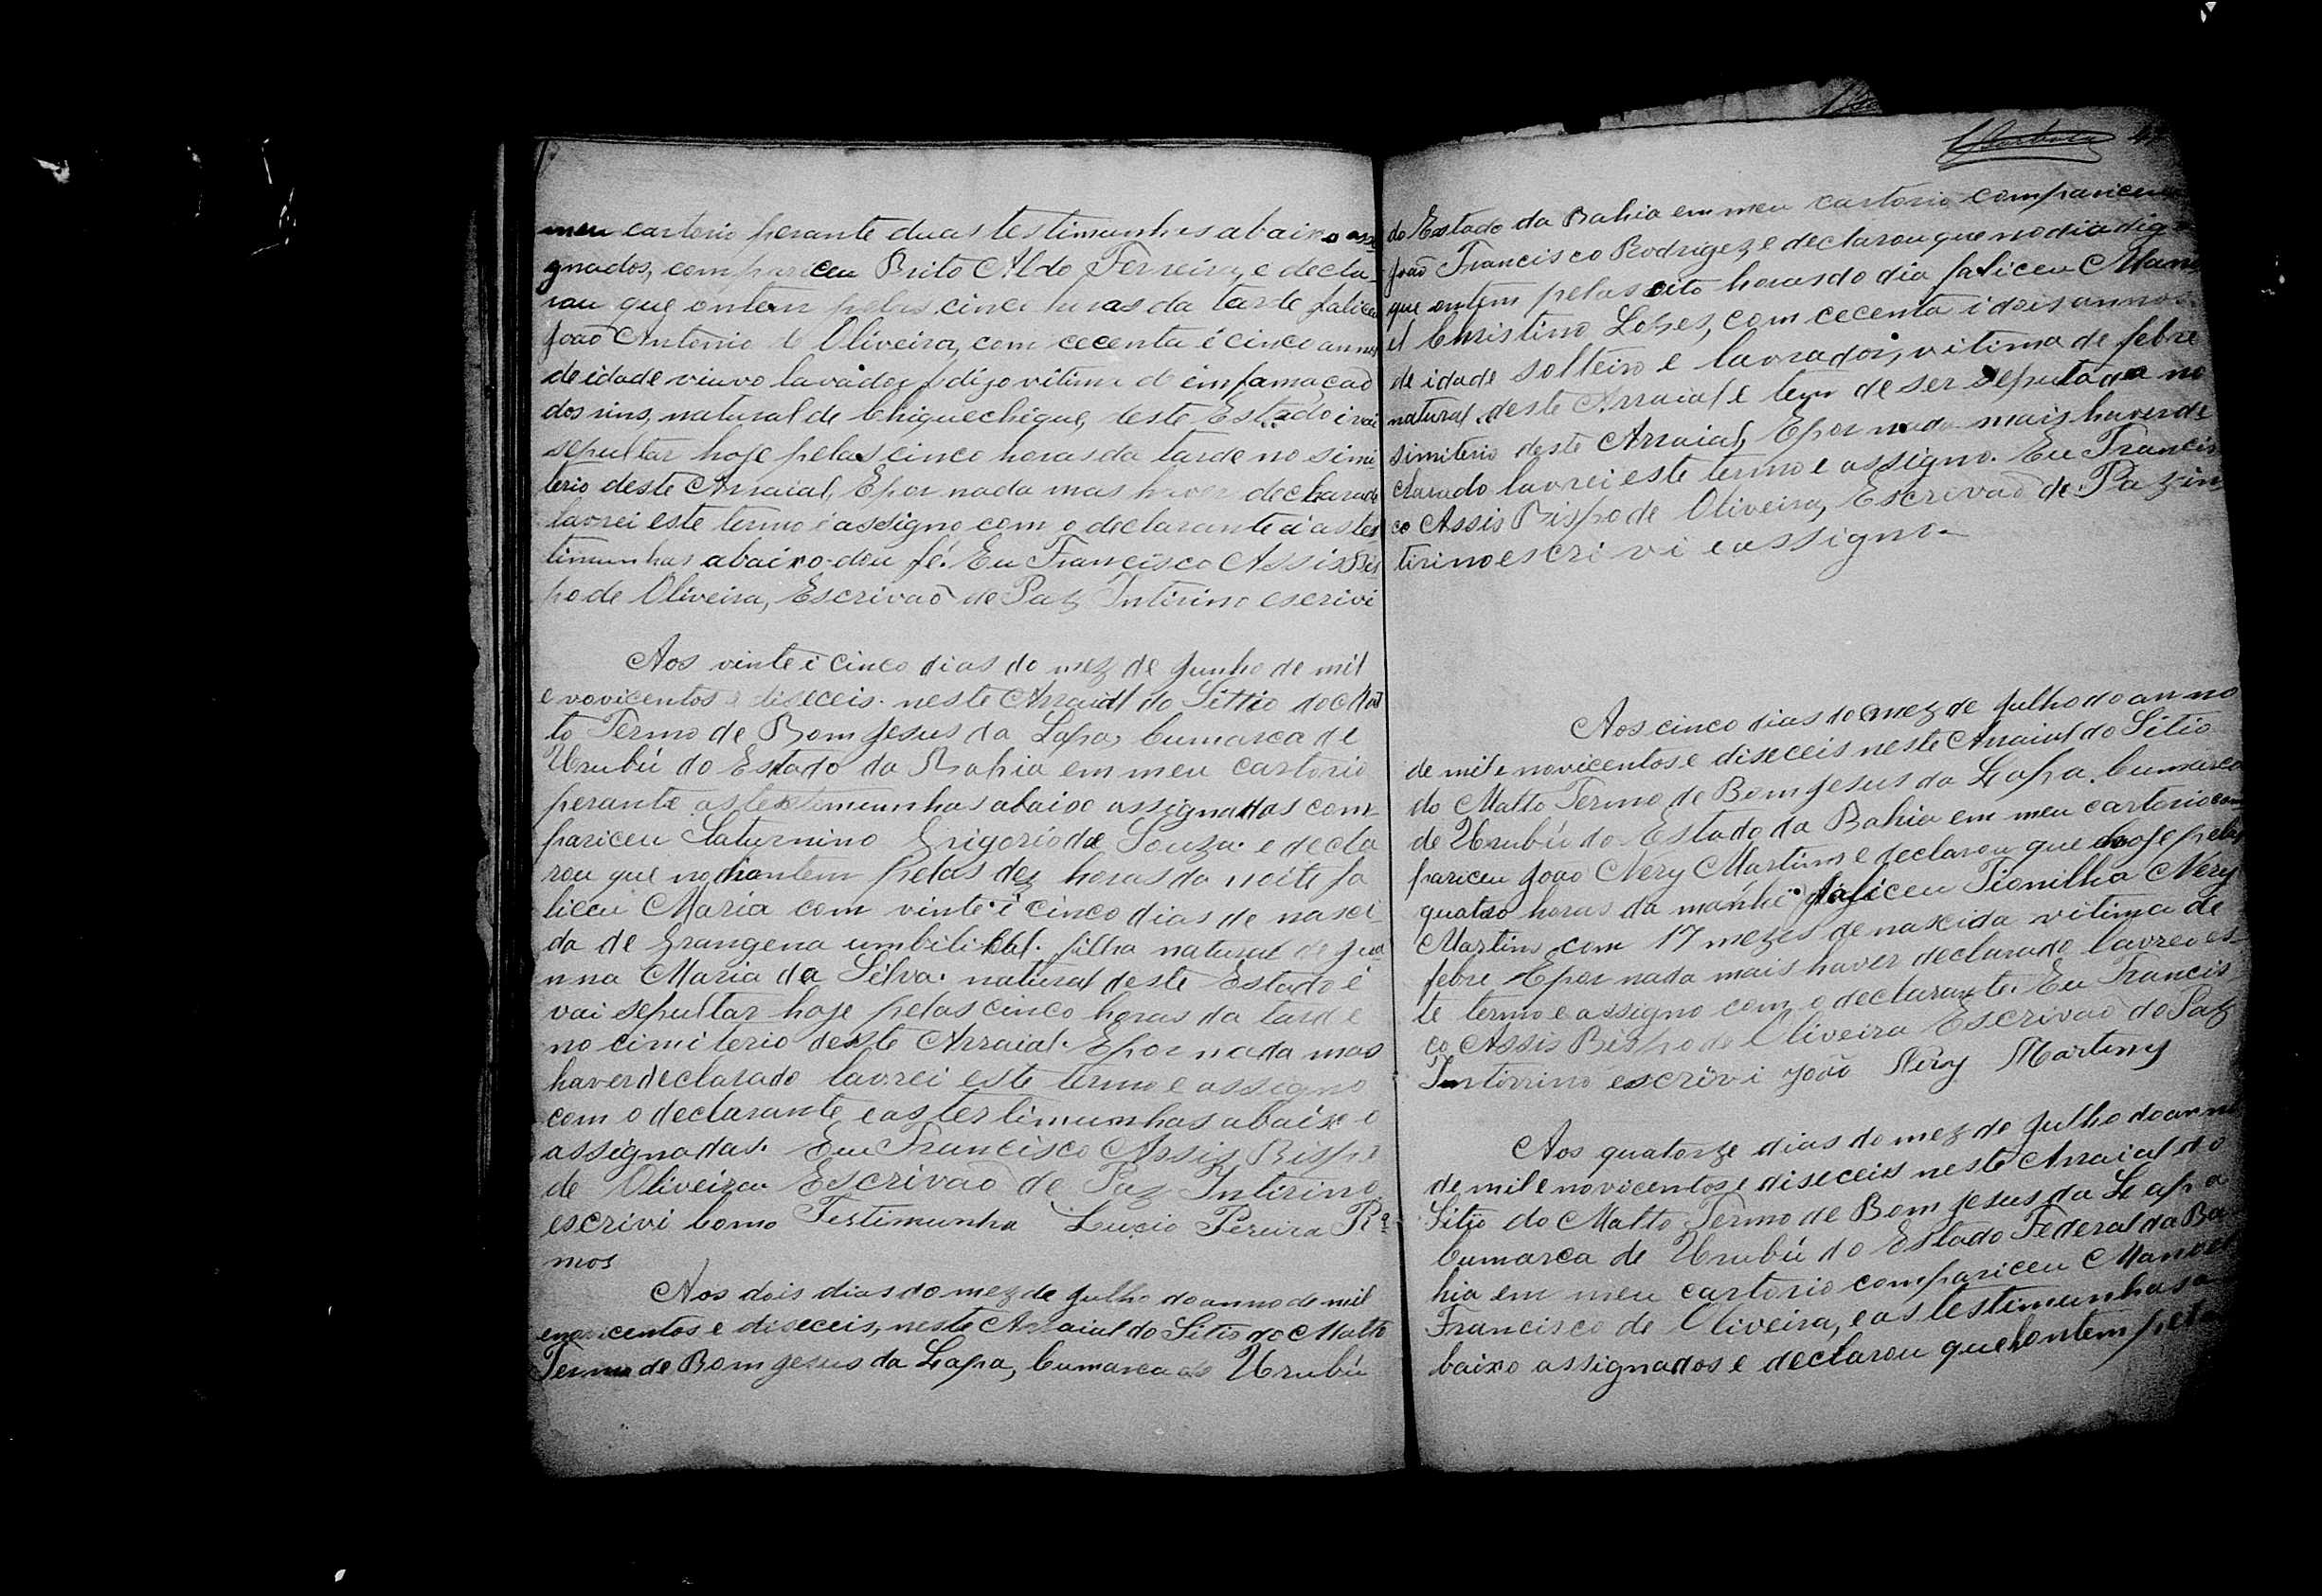 meu cartorio perante duas testimunhas abaixo assi
gnados, compariceu Brito Aldo Ferreira, e decla-
rou que ontem pelas cinco horas da tarde faliceu
João Antonio de Oliveira, com cecenta é cinco annos
de idade viuvo lavador, digo vitima de infamação
dos rins, natural de Chiquechique, deste Estado i vai
sepultar hoje pelas cinco horas da tarde no simi
terio deste Arraial, E por nada mas haver declarado
lavrei este termo é assigno com o declarante é as tes
timunhas abaixo dou fé. Eu Francisco Assis Bis
po de Oliveira, Escrivão de Paz Intirino escrivi
Aos vinte i cinco dias do mez de Junho de mil
e novicentos e diseceis. neste Arraial do Sittio do Mat
to Termo de Bom Jesus da Lapa, Cumarca de
Urubú do Estado da Bahia em meu cartorio
perante as testimunhas abaixo assignadas com-
pariceu Saturnino Grigorio de Souza. e decla
rou que no dia ontem pelas dez horas da noite fa
liceu Maria com vinte i cinco dias de nasci
da de Grangena umbilical. filha natural de Jua
nna Maria da Silva. natural deste Estado é
vai sepultar hoje pelas cinco horas da tarde
no cimiterio deste Arraial. E por nada mas
haver declarado lavrei este termo e assigno
com o declarante e as testimunhas abaixo
assignadas. Eu Francisco Assis Bispo
de Oliveira Escrivão de Paz Intirino
escrivi Como Testimunha Lucio Pereira Ra
mos
Aos dois dias do mez de Julho do anno de mil
enovicentos e diseceis, neste Arraial do Sitio do Matto
Termo de Bom Jesus da Lapa, Cumarca de Urubú
do Estado da Bahia em meu cartorio compariceu
João Francisco Rodrigez e declarou que no dia digo
que ontem pelas oito horas do dia faliceu Mano
el Christino Lopes, com cecenta i dois annos
de idade solteiro e lavrador, vitima de febre
natural deste Arraial e tem de ser sepultado no
simiterio deste Arraial, E por nada mais haver de
clarado lavrei este termo e assigno. Eu Francis
co Assis Bispo de Oliveira, Escrivão de Paz in
tirino escrivi e assigno-
Aos cinco dias do mez de Julho do anno
de mil e novicentos e diseceis neste Arraial do Sitio
do Matto Termo de Bom Jesus da Lapa. Cumarca
de Urubú do Estado da Bahia em meu cartorio com
pariceu João Nery Martins e declarou que hoje pelas
quatro horas da manhé faliceu Tionilha Nery
Martins com 17 mezes de nascida vitima de
febre E por nada mais haver declarado lavrei es-
te termo e assigno com o declarante. Eu Francis
co Assis Bispo de Oliveira Escrivão de Paz
Intirino escrivi João Nery Martins
Aos quatorze dias do mez de Julho do anno
de mil e novicentos e diseceis neste Arraial do
Sitio do Matto Termo de Bom Jesus da Lapa
Cumarca de Urubú do Estado Federal da Ba
hia em meu cartorio compariceu Manoel
Francisco de Oliveira, e as testimunhas a
baixo assignados e declarou que hontem pelas